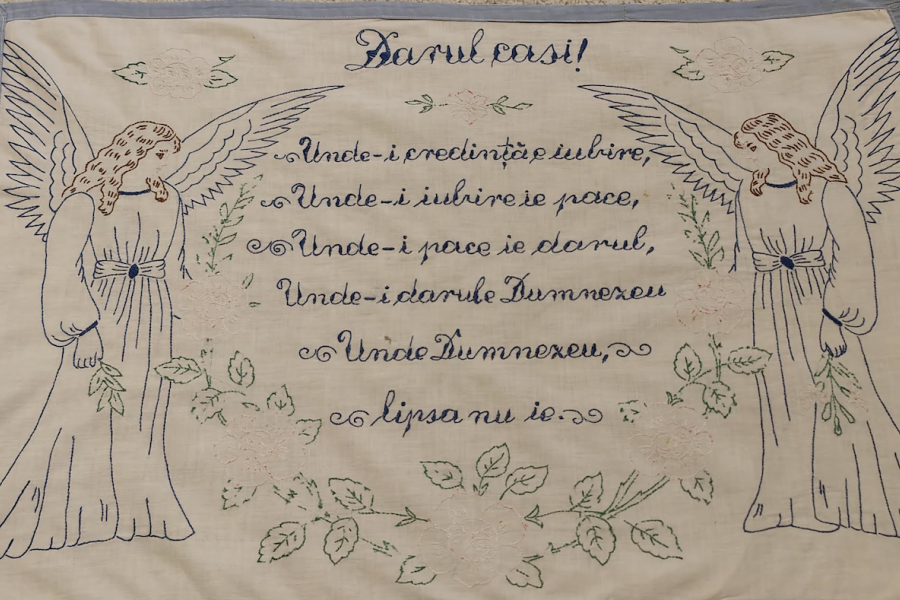 Darul casi!
Unde-i credință e iubire,
Unde-i iubire ie pace,
Unde-i pace ie darul,
Unde-i darul e Dumnezeu
Unde Dumnezeu,
lipsa nu ie.